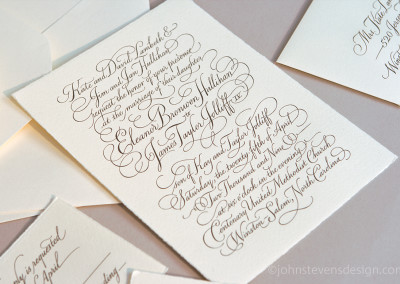 Kate and David Lambeth &
Jim and Jan Hallihan
request the honor of your presence
at the marriage of their daughter
Eleanor Bronwon Hallihan
to
James Taylor Jolliff IV
son of Hoy and Taylor Jolliff
Saturday, the twenty fifth of April
Two Thousand and Nine
at six o'clock in the evening
Centenary United Methodist Church
Winston Salem, North Carolina
is requested
April
©johnstevensdesign.com